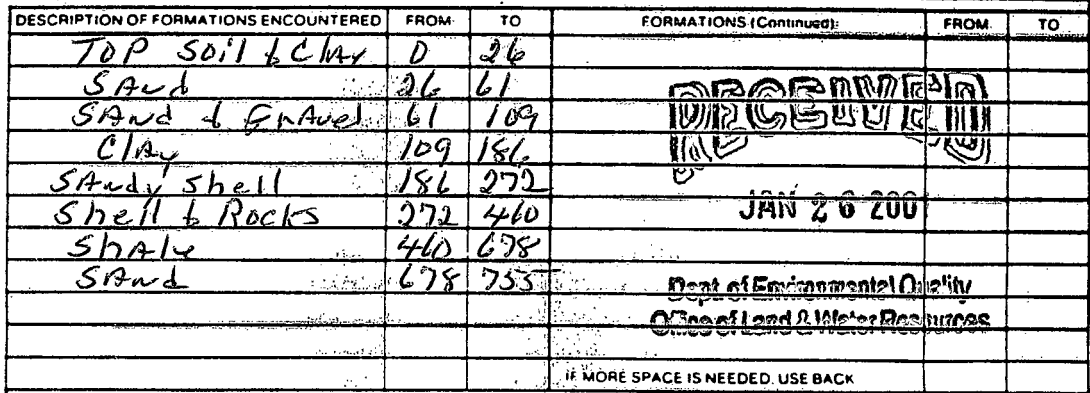 DESCRIPTION OF FORMATIONS ENCOUNTERED FROM TO FORMATIONS (Continued): FROM TO
TOP SOil & ClAy 0 26
SAnd 26 61
SAnd & GrAvel 61 109
ClAy 109 186
SAndy Shell 186 272
Shell & Rocks 272 460
ShAle 460 678
SAnd 678 755
RECEIVED
JAN 26 200
Dept of Environmental Quality
Office of Land & Water Resources
IF MORE SPACE IS NEEDED, USE BACK